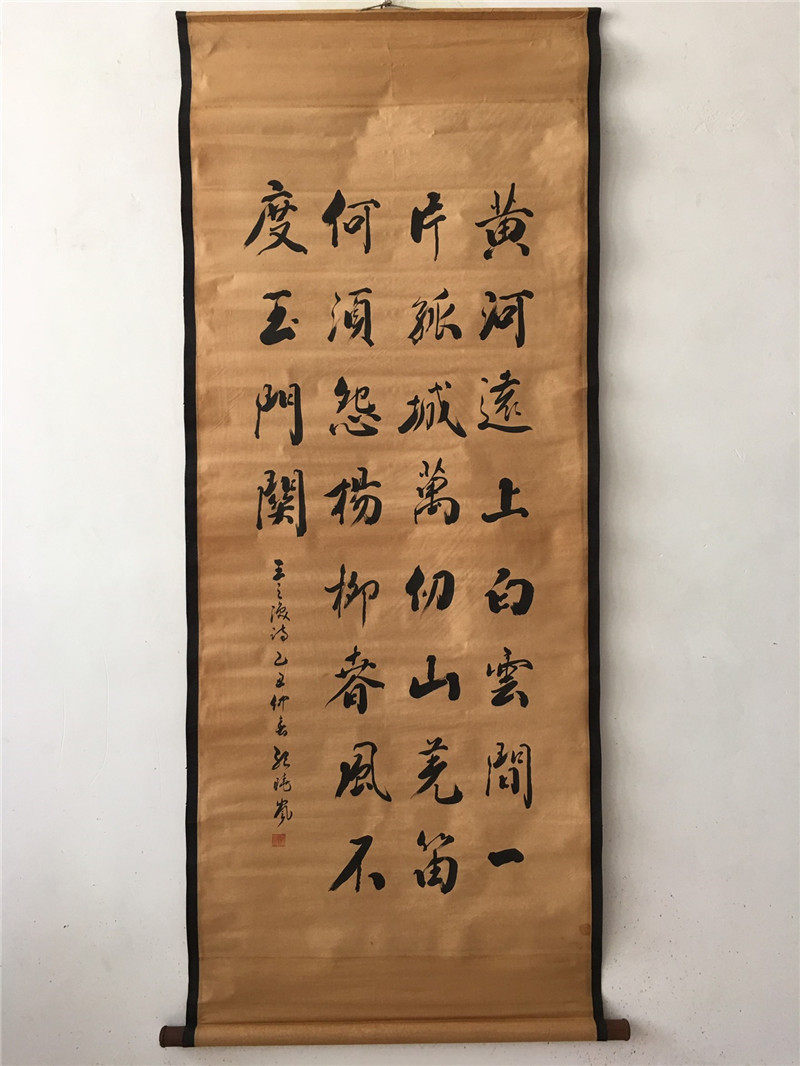 黄河遠上白雲間一
片孤城萬仞山羌笛
何須怨楊柳春風不
度玉門關
王之渙詩乙丑仲春